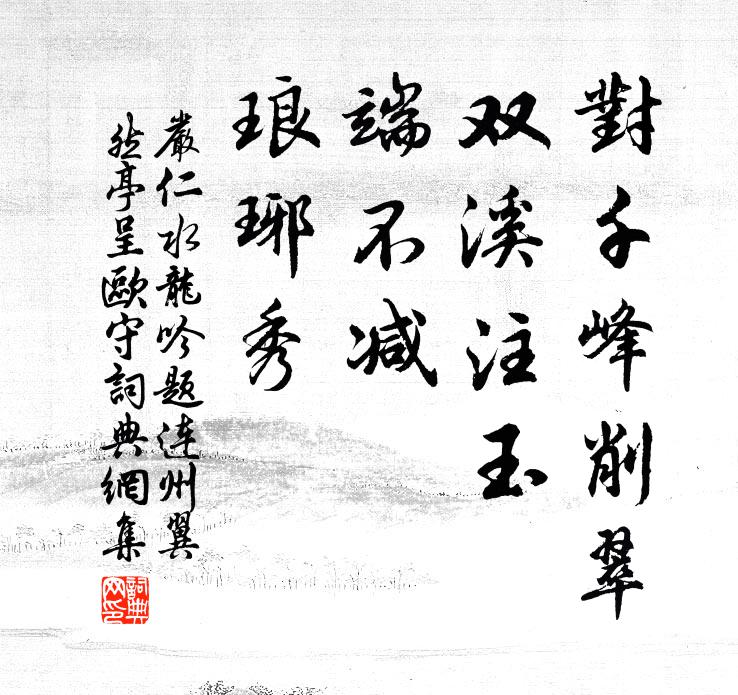 對千峰削翠
双溪注玉
端不减
琅琊秀
嚴仁水龍吟题連州翼
然亭呈歐守詞典網集
詞典
网印